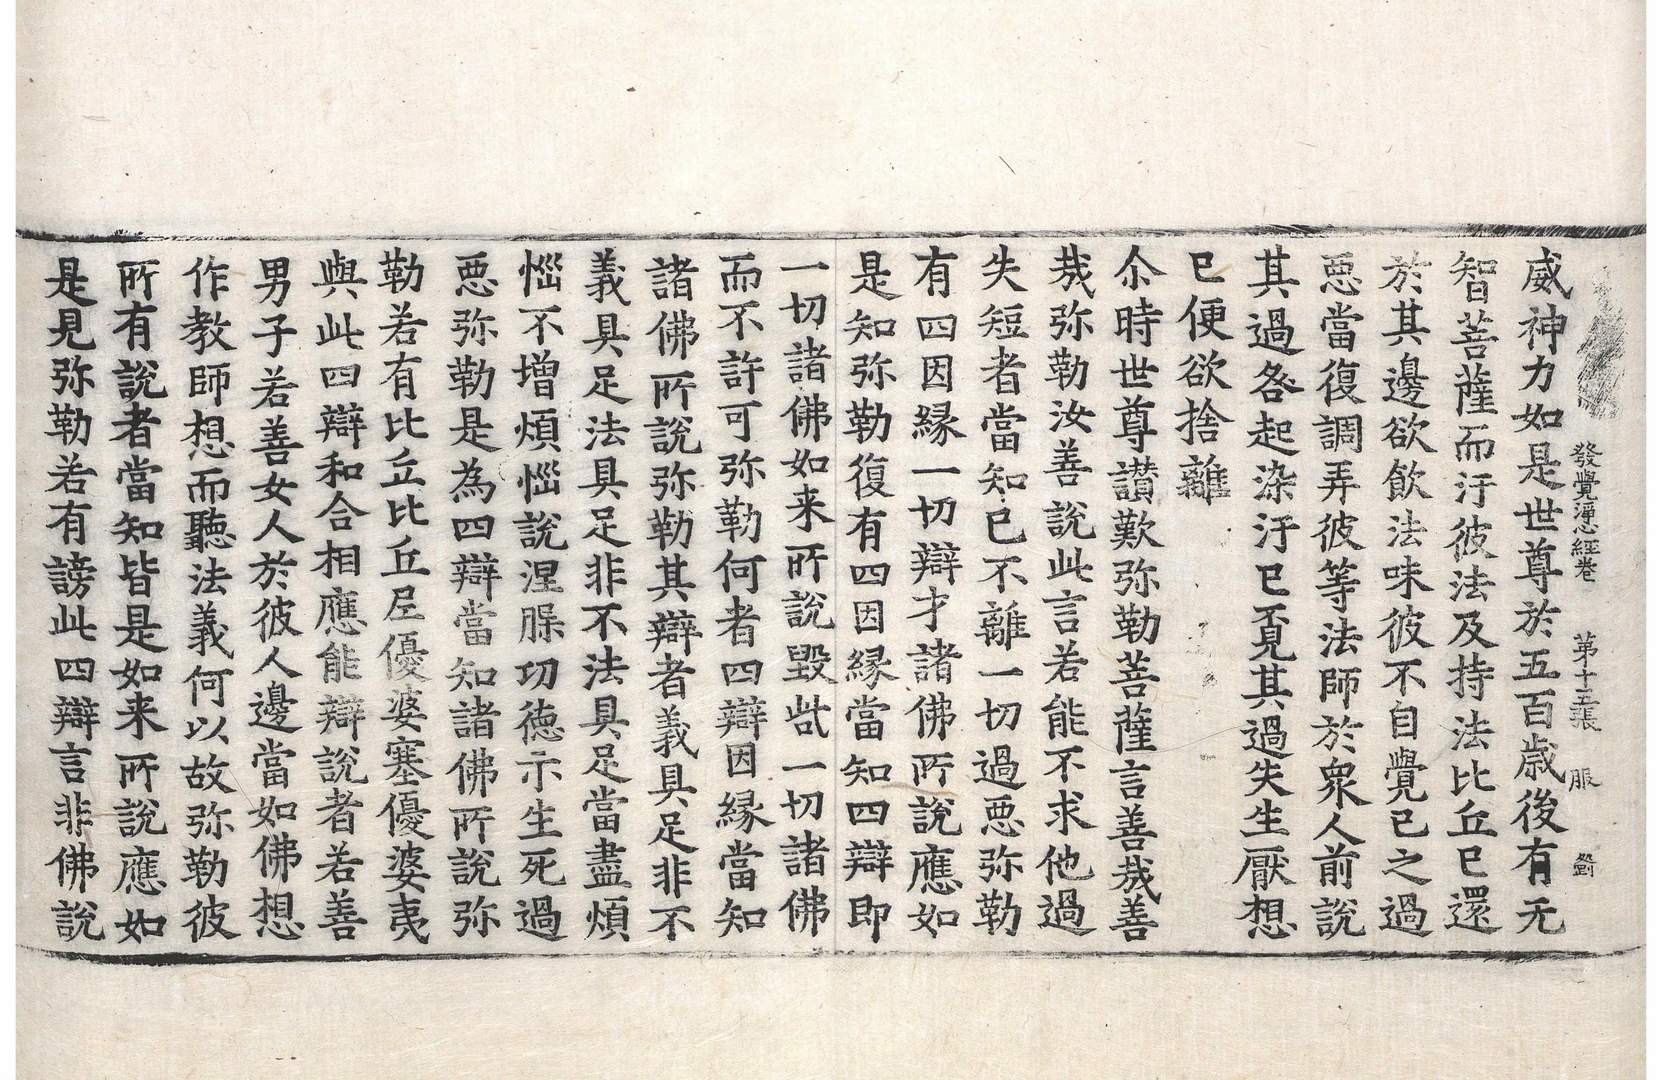 發覺淨心經卷 第十五張 服
威神力如是世尊於五百歲後有无
智菩薩而汙彼法及持法比丘已還
於其邊欲飲法味彼不自覺已之過
惡當復調弄彼等法師於衆人前說
其過咎起染汙已覓其過失生厭想
已便欲捨離
尒時世尊讃歎弥勒菩薩言善㢤善
㢤弥勒汝善說此言若能不求他過
失短者當知已不離一切過惡弥勒
有四因緣一切辯才諸佛所說應如
是知弥勒復有四因緣當知四辯即
一切諸佛如来所說毀呰一切諸佛
而不許可弥勒何者四辯因緣當知
諸佛所說弥勒其辯者義具足非不
義具足法具足非不法具足當盡煩
惱不增煩惱說涅槃功德示生死過
惡弥勒是為四辯當知諸佛所說弥
勒若有比丘比丘尼優婆塞優婆夷
與此四辯和合相應能辯說者若善
男子若善女人於彼人邊當如佛想
作教師想而聽法義何以故弥勒彼
所有說者當知皆是如来所說應如
是見弥勒若有謗此四辯言非佛說